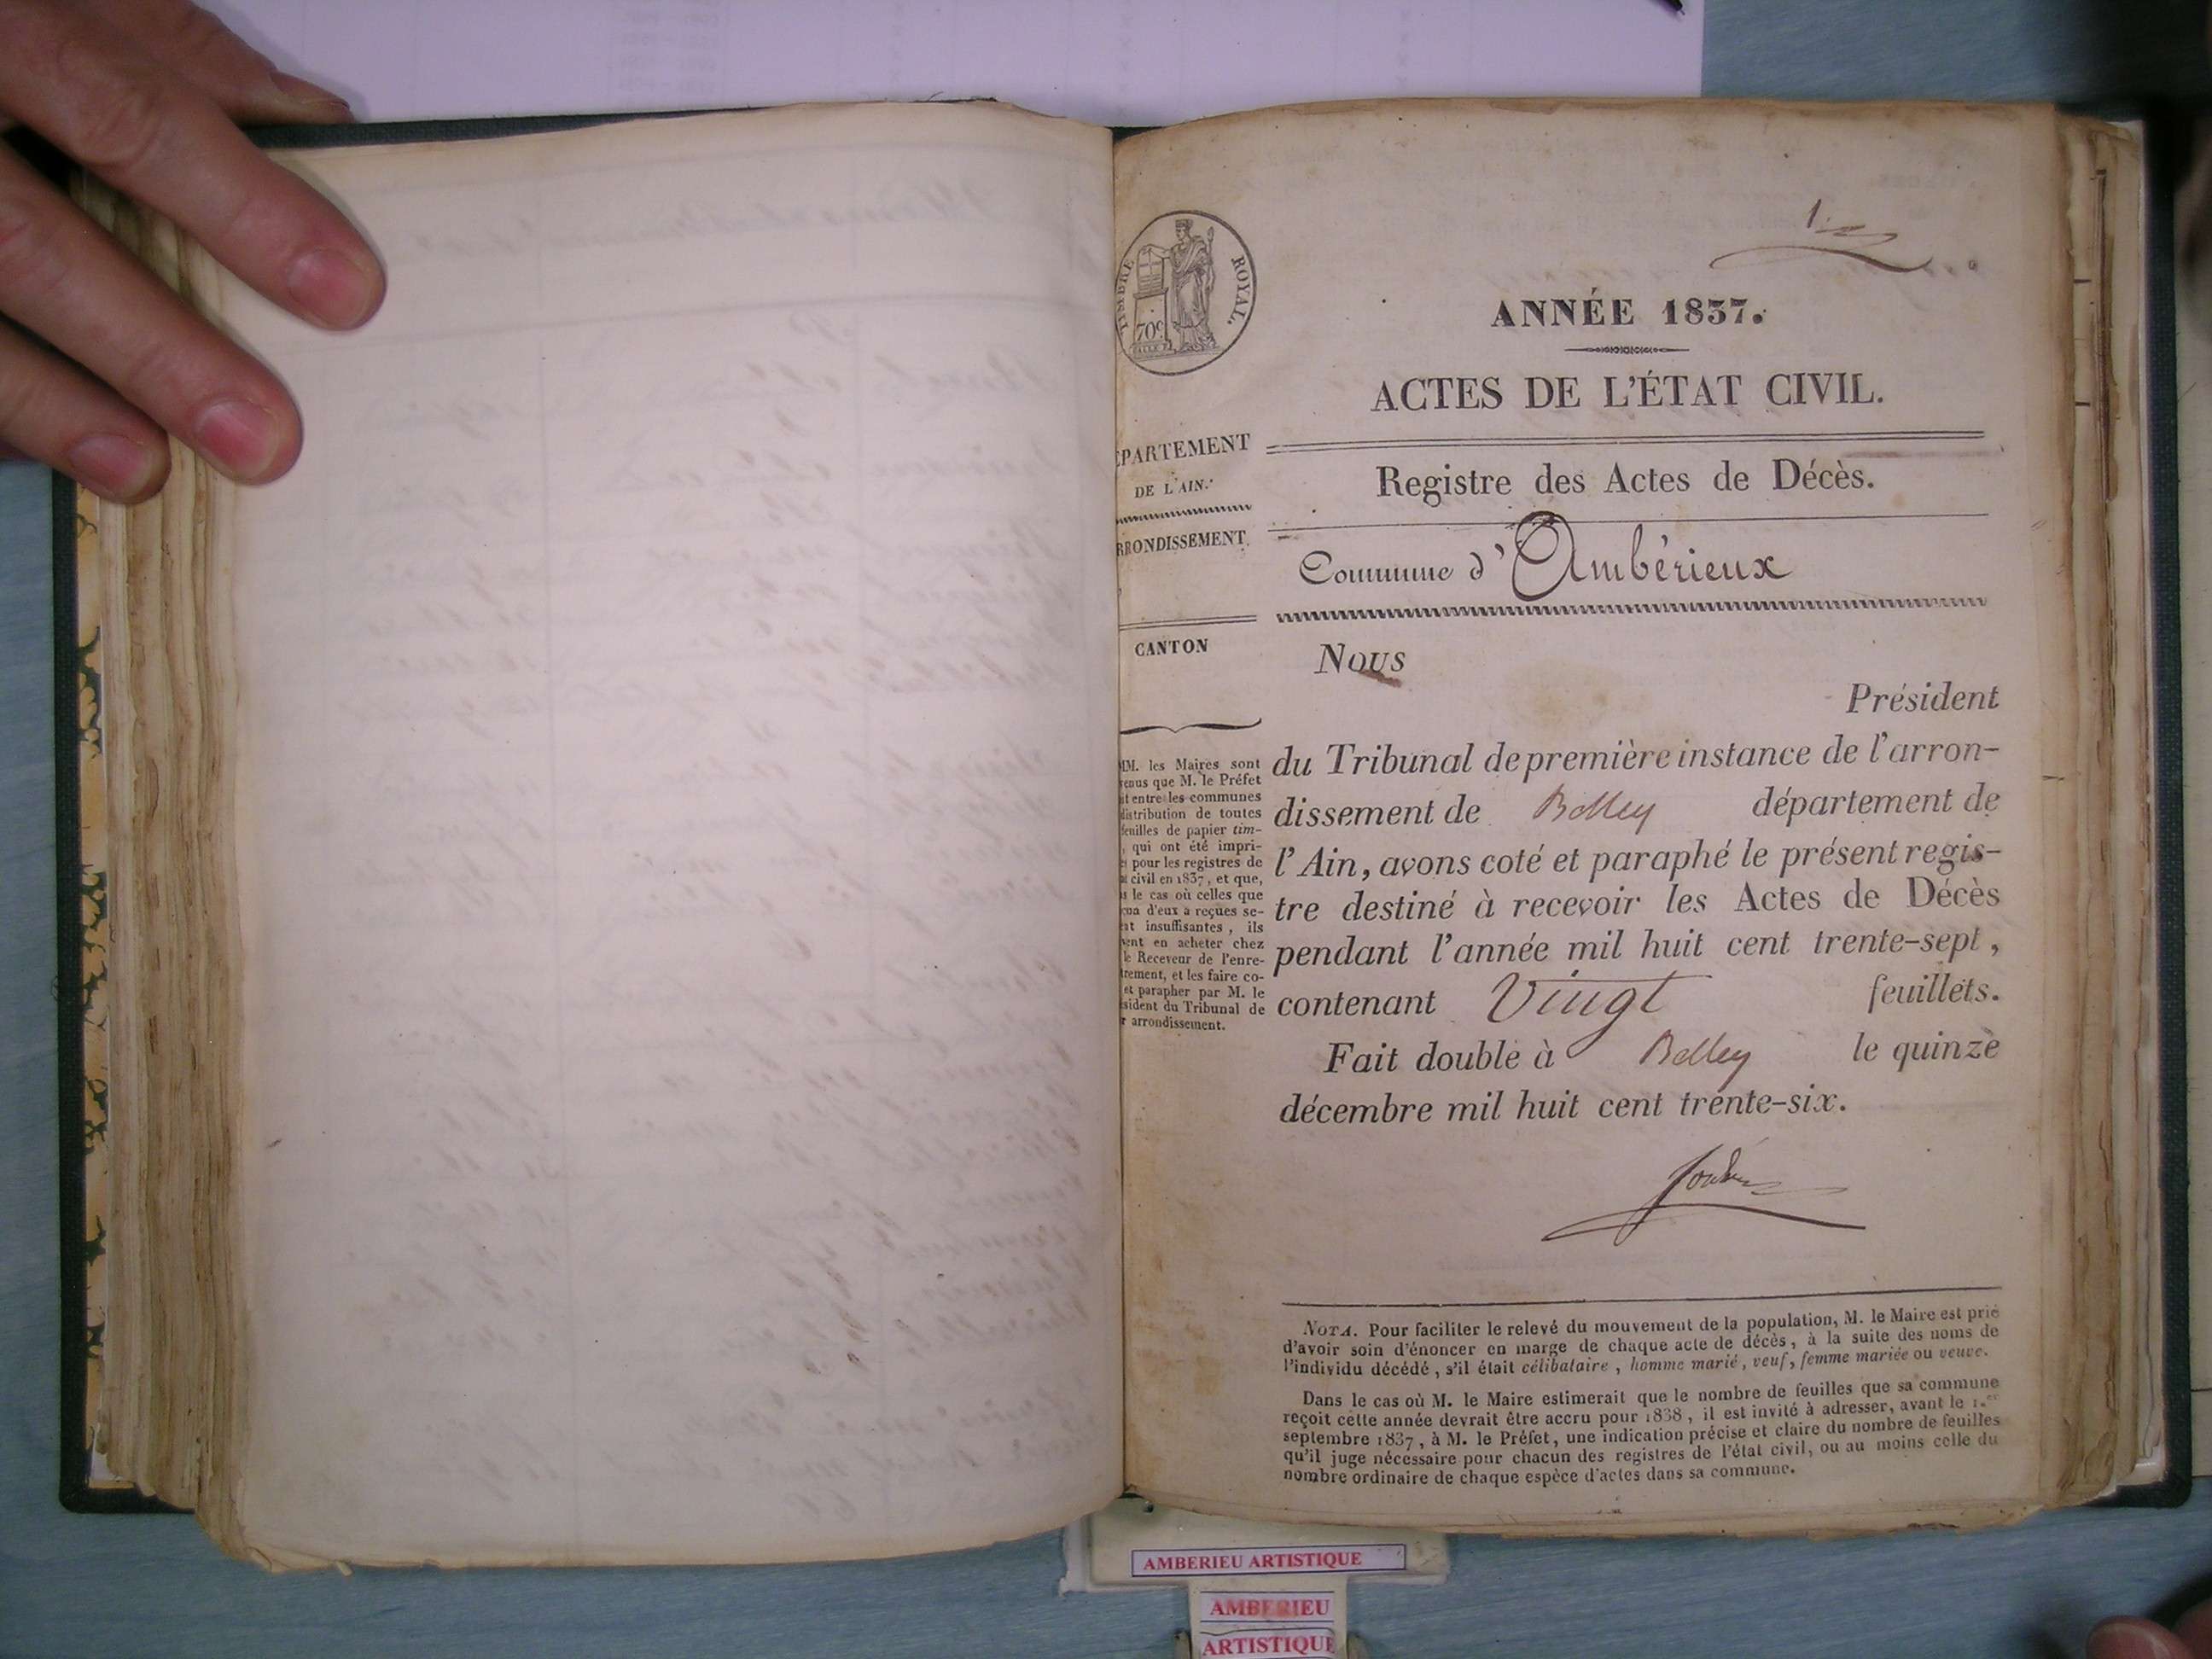 1.
TIMBRE ROYAL.
70c
ANNÉE 1837.
ACTES DE L'ÉTAT CIVIL.
PARTEMENT
DE L'AIN.
RRONDISSEMENT
CANTON
Registre des Actes de Décès.
Commune d'Ambérieux
Nous
Président
du Tribunal de première instance de l'arron-
dissement de Belley département de
l'Ain, avons coté et paraphé le présent regis-
tre destiné à recevoir les Actes de Décès
pendant l'année mil huit cent trente-sept,
contenant Vingt feuillets.
Fait double à Belley le quinze
décembre mil huit cent trente-six.
MM. les Maires sont
venus que M. le Préfet
it entre les communes
distribution de toutes
feuilles de papier tim-
, qui ont été impri-
pour les registres de
civil en 1837, et que,
le cas où celles que
d'eux a reçues se-
nt insuffisantes, ils
vent en acheter chez
le Receveur de l'enre-
trement, et les faire co-
et parapher par M. le
sident du Tribunal de
r arrondissement.
NOTA. Pour faciliter le relevé du mouvement de la population, M. le Maire est prié
d'avoir soin d'énoncer en marge de chaque acte de décès, à la suite des noms de
l'individu décédé, s'il était célibataire, homme marié, veuf, femme mariée ou veuve.
Dans le cas où M. le Maire estimerait que le nombre de feuilles que sa commune
reçoit cette année devrait être accru pour 1838, il est invité à adresser, avant le 1.er
septembre 1837, à M. le Préfet, une indication précise et claire du nombre de feuilles
qu'il juge nécessaire pour chacun des registres de l'état civil, ou au moins celle du
nombre ordinaire de chaque espèce d'actes dans sa commune.
AMBERIEU ARTISTIQUE
AMBERIEU
ARTISTIQUE